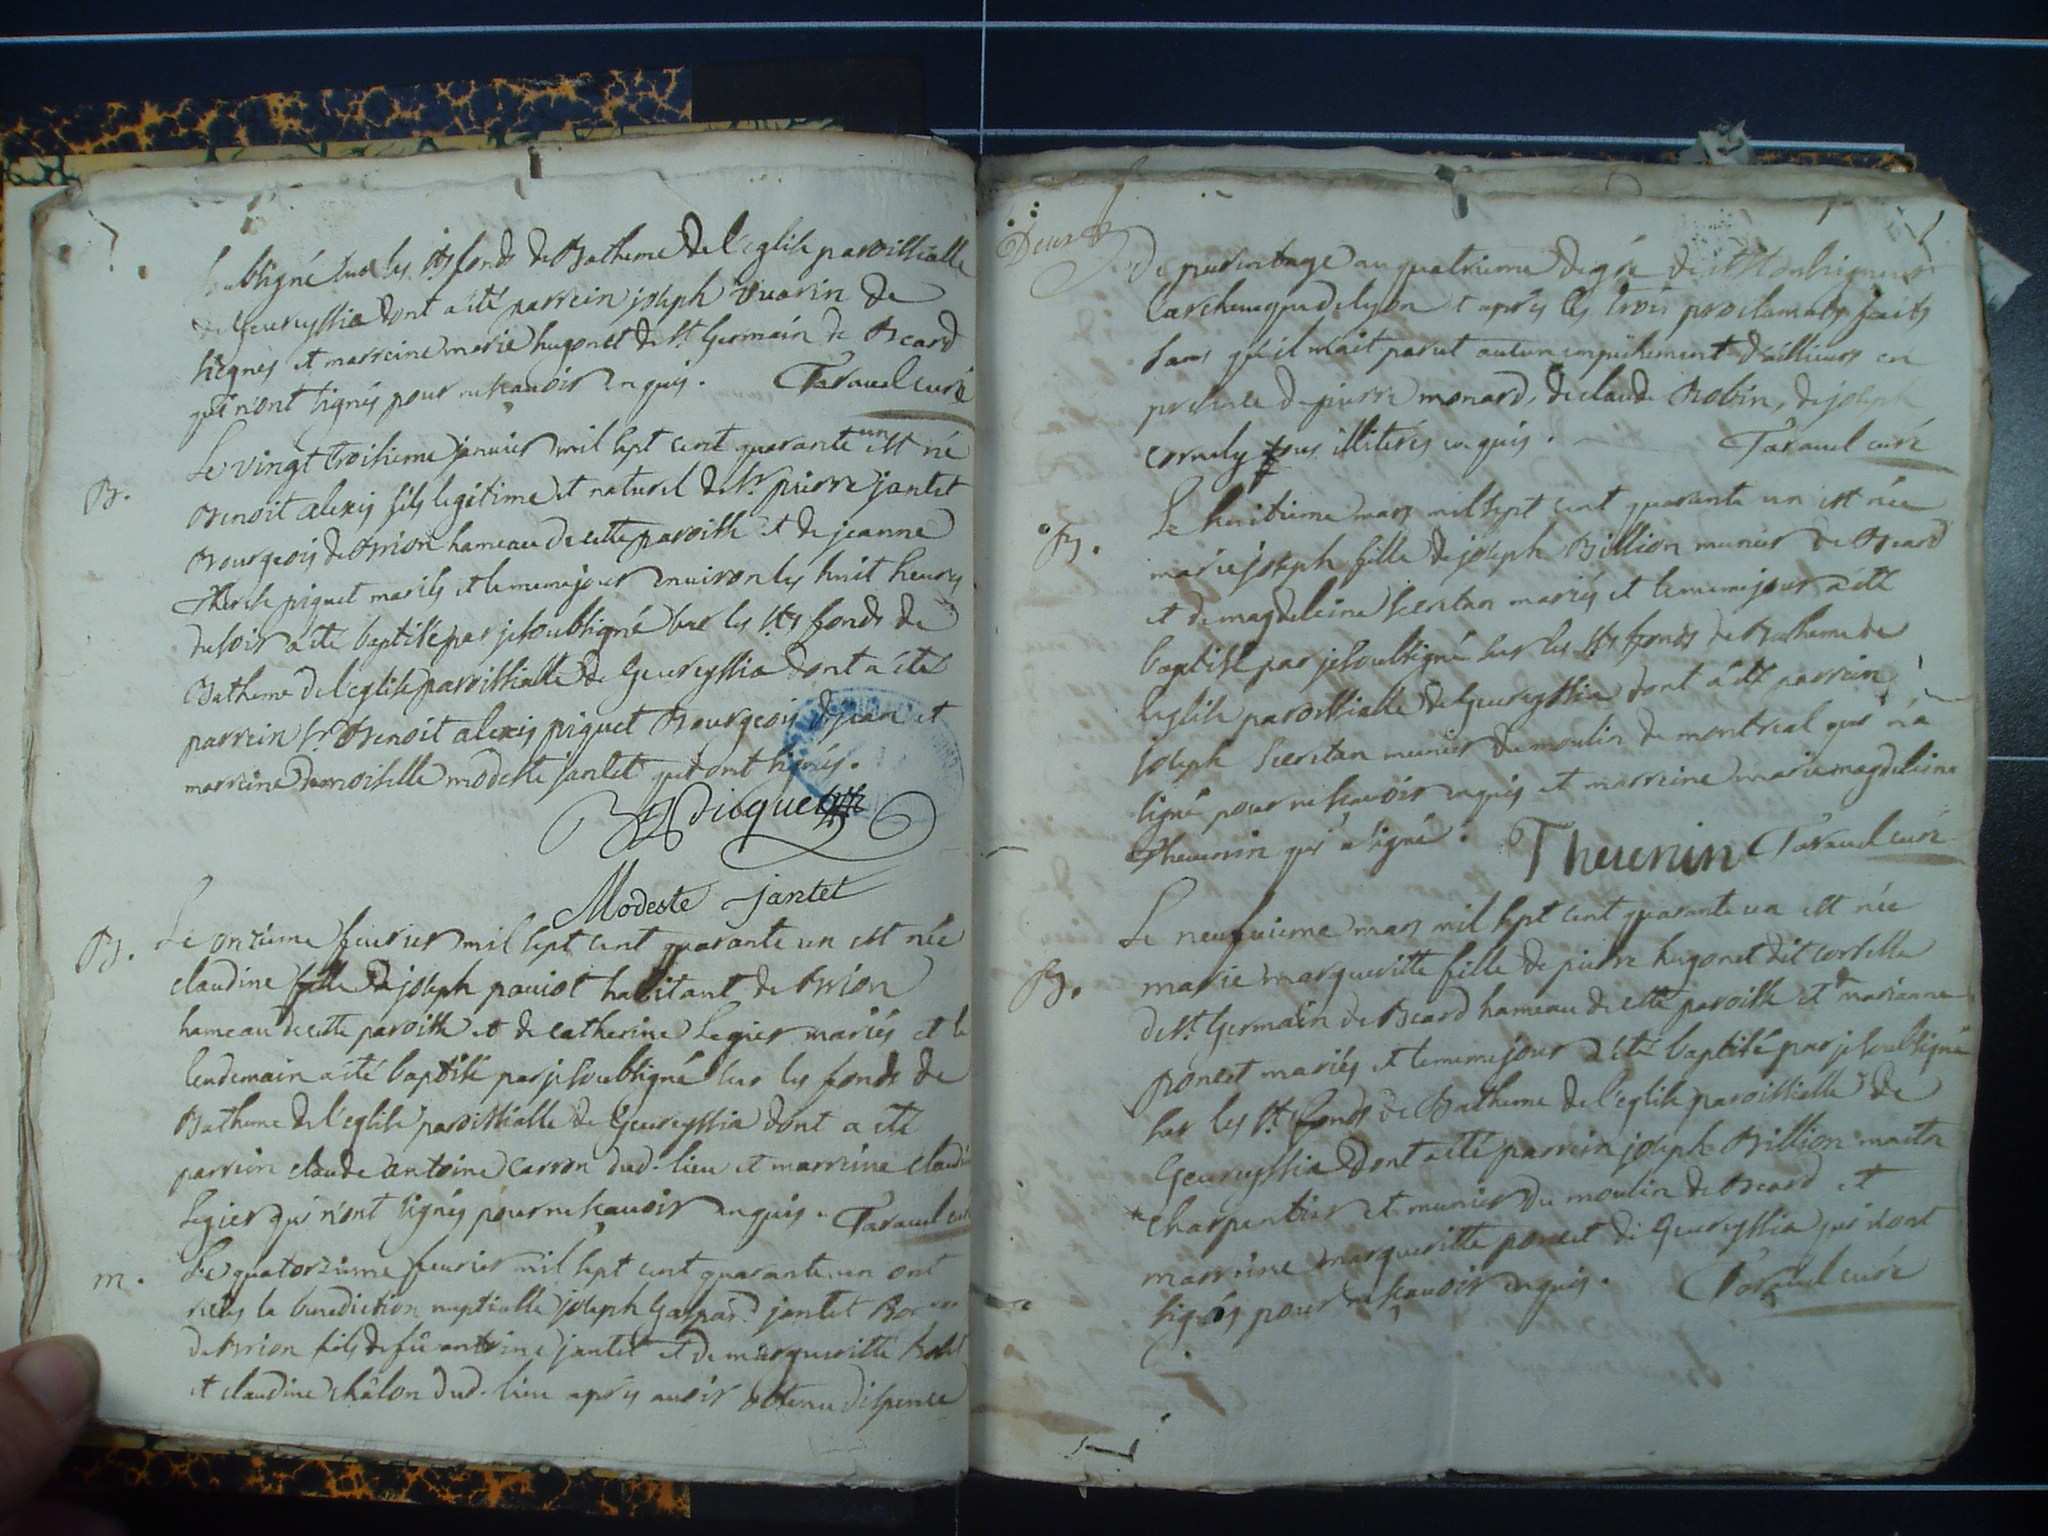 soubsigné sur les sts fonds de Batheme de l'eglise paroissialle
de Geureyssia dont a été parrein joseph Vuarin de
signes et marreine marie hugonet de st Germain de Beard
qui n'ont signés pour ne scavoir enquis. Taravel curé
B.
Le vingt troisieme janvier mil sept cent quarante un est né
Benoit alexis fils legitime et naturel de sr pierre jantet
Bourgeois de Brion hameau de cette paroisse et de jeanne
Therese piquet mariés et le meme jour environ les huit heures
du soir a été baptisé par je soubsigné sur les sts fonds de
Batheme de l'eglise paroissialle de Geureyssia dont a été
parrein sr Benoit alexis piquet Bourgeois et
marreine demoiselle modeste jantet qui ont signés.
Picquet
Modeste jantet
B.
Le onzieme fevrier mil sept cent quarante un est née
claudine fille de joseph pauiot habitant de Brion
hameau de cette paroisse et de catherine Legier mariés et le
lendemain a été baptisé par je soubsigné sur les fonds de
Batheme de l'eglise paroissialle de Geureyssia dont a été
parrein claude antoine carron dud. lieu et marreine
Legier qui n'ont signés pour ne scavoir enquis. Taravel curé
m.
Le quatorzieme fevrier mil sept cent quarante un ont
la benediction nuptialle joseph Gaspard jantet
de Brion fils de fû antoine jantet et de margueritte
et claudine châlon dud. lieu apres avoir obtenu dispense
Deux
de parentage au quatrieme degré de Monseigneur
l'archeuesque de lyon et apres les trois proclamats faits
sans qu'il n'ait parut aucun empêchement d'ailleurs en
presence de pierre monard, de claude Robin, de joseph
cornely tous illiterés enquis. Taravel curé
B.
Le huitieme mars mil sept cent quarante un est née
marie joseph fille de joseph Billion munier de Beard
et de magdeleine Secretan mariés et le meme jour a été
baptisé par je soubsigné sur les sts fonds de Batheme de
l'eglise paroissialle de Geureyssia dont a été parrein
joseph Secretan munier du moulin de montreal qui n'a
signé pour ne scavoir enquis et marreine marie magdeleine
Theuenin qui a signé. Theuenin Taravel curé
B.
Le neufuieme mars mil sept cent quarante un est née
marie margueritte fille de pierre hugonet dit
de st Germain de Beard hameau de cette paroisse et de marianne
Poncet mariés et le meme jour a été baptisé par je soubsigné
sur les st fonds de Batheme de l'eglise paroissialle de
Geureyssia dont a été parrein joseph Billion maitre
charpentier et munier du moulin de Beard et
marreine margueritte poncet de Geureyssia qui n'ont
signés pour ne scavoir enquis. Taravel curé